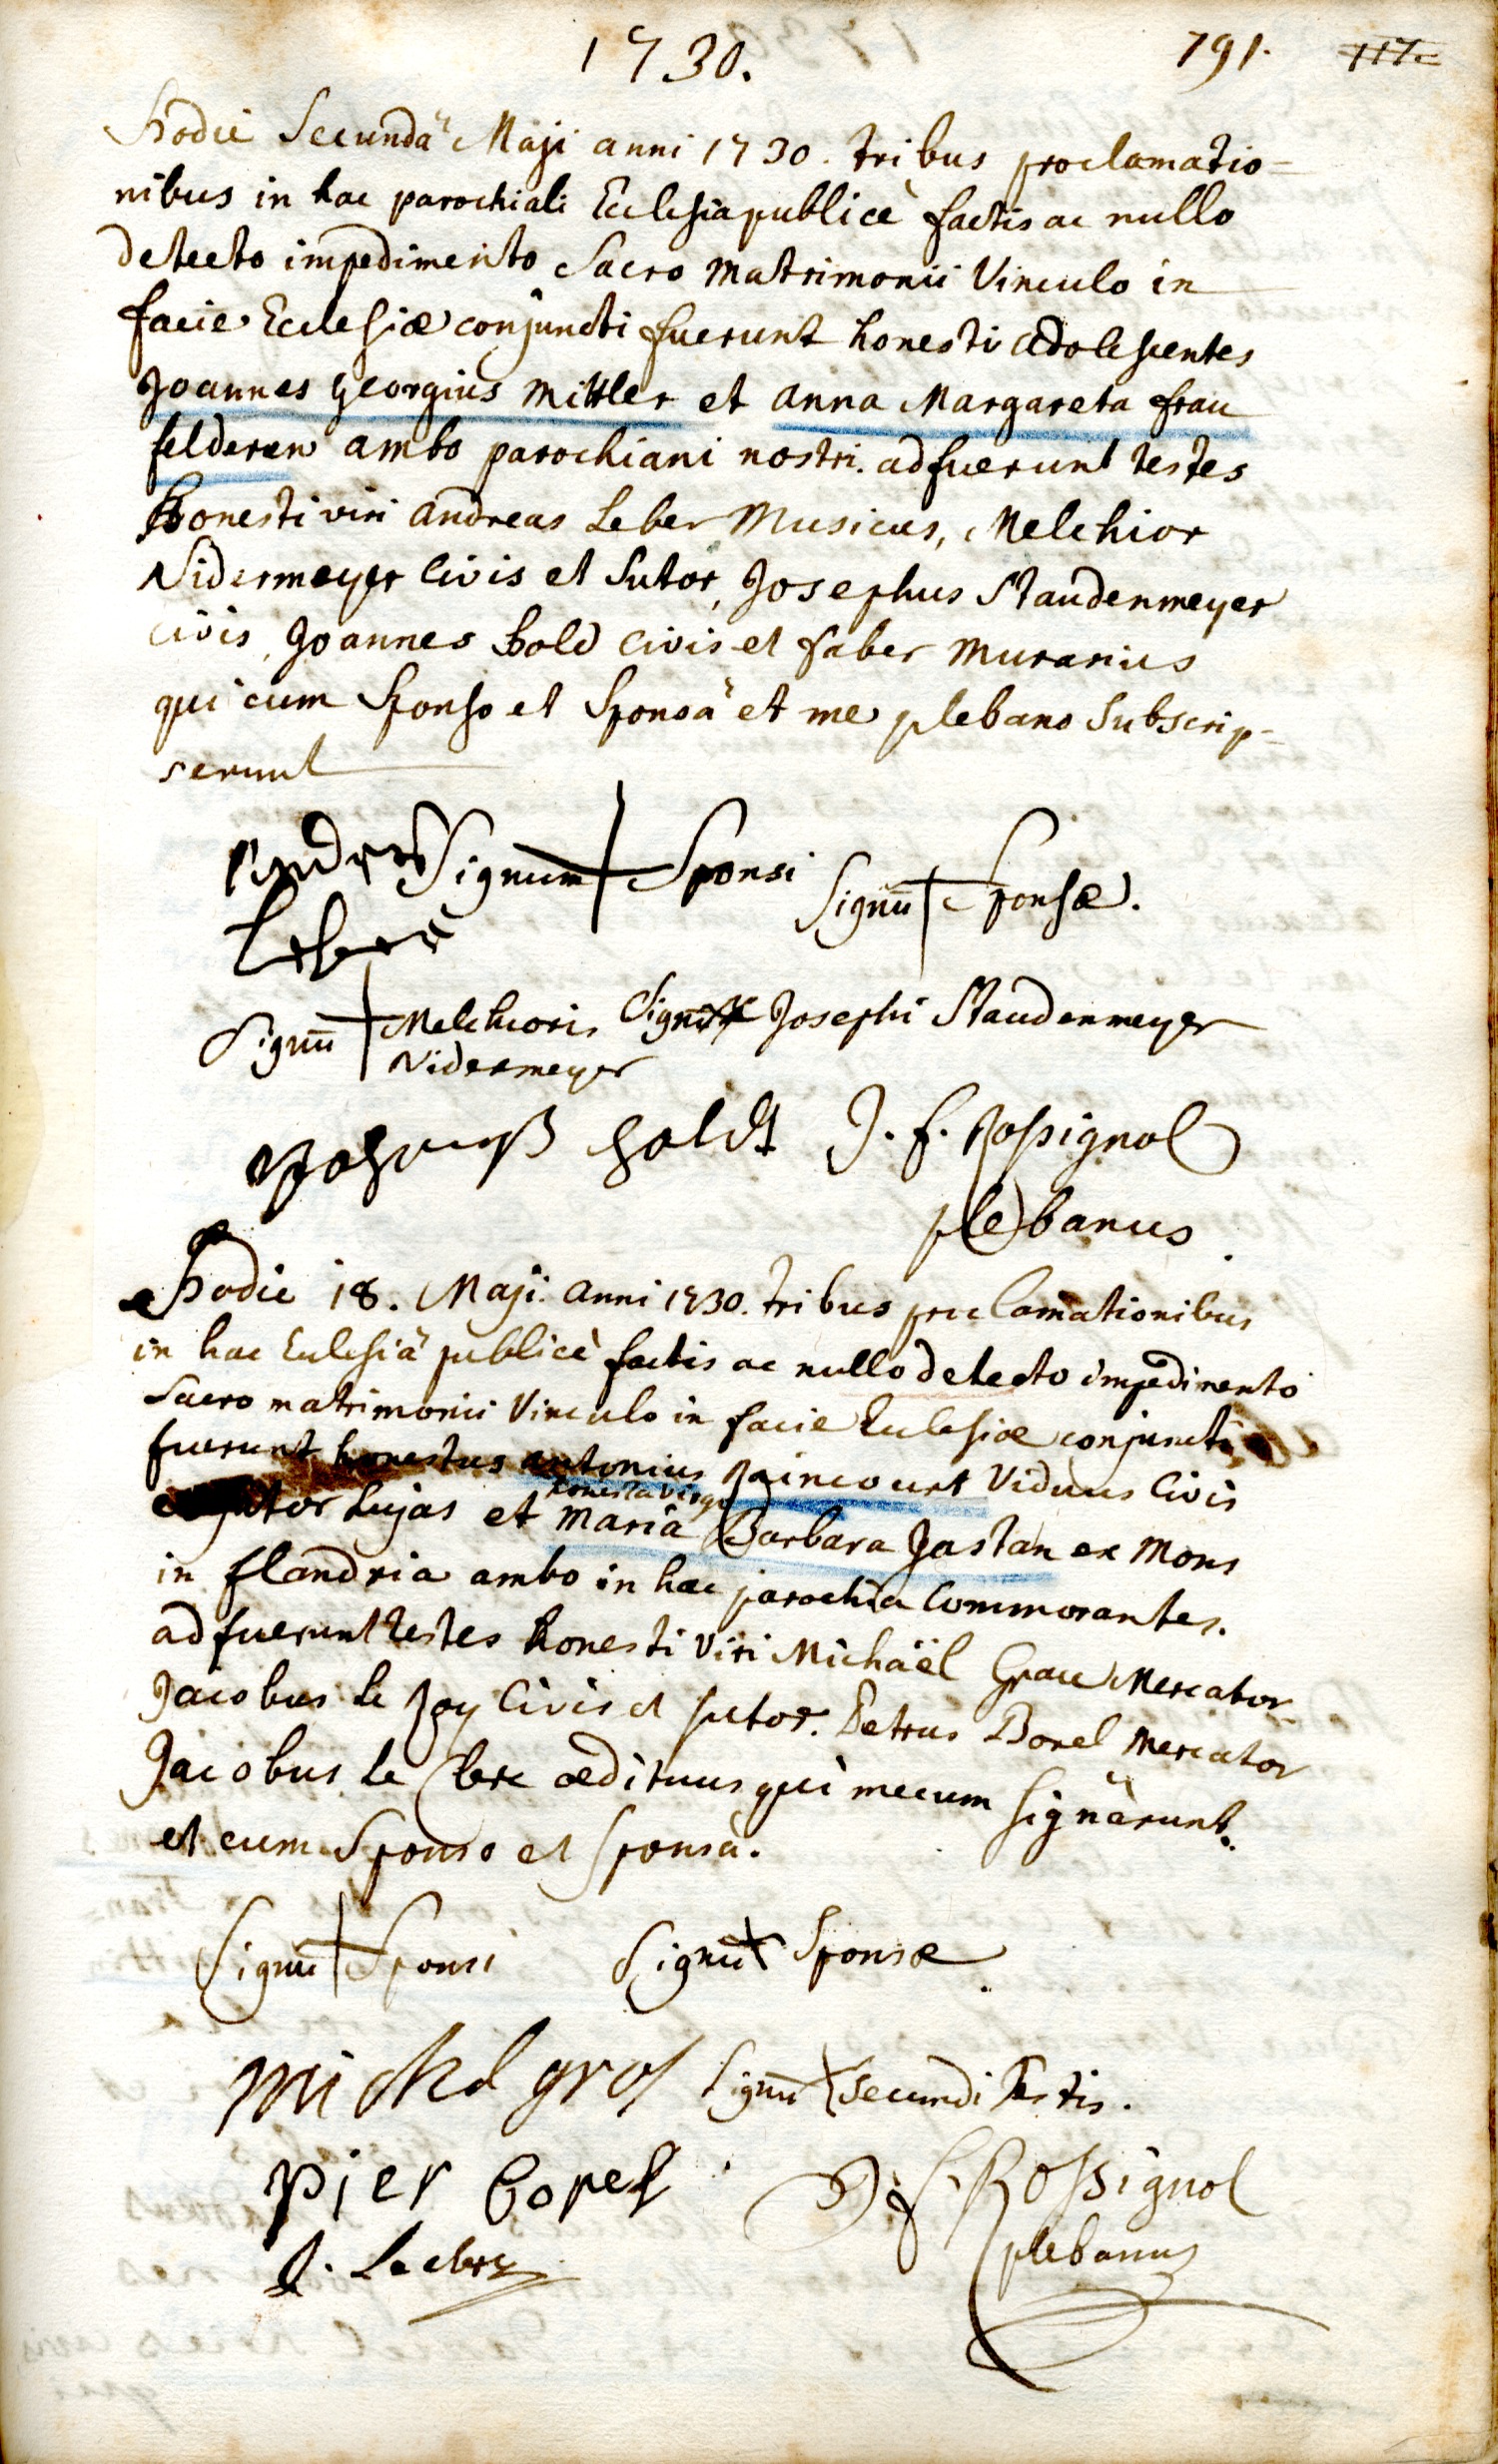 1730. 791. 117.
Hodie Secundâ Maji anni 1730. tribus proclamatio=
nibus in hac parochiali Ecclesia publicè factis ac nullo
detecto impedimento Sacro Matrimonii Vinculo in
facie Ecclesiæ conjuncti fuerunt honesti adolescentes
Joannes Georgius Mittler et anna Margareta frau
felderen ambo parochiani nostri. adfuerunt testes
honesti viri andreas Leber Musicus, Melchior
Nidermeyer Civis et Sutor, Josephus Staudenmeyer
civis, Joannes hold civis et faber Murarius
qui cum Sponso et Sponsâ et me plebano Subscrip=
serunt
Andres Signum + Sponsi Signū + Sponsæ.
Leber
Signū + Melchioris Signū + Josephi Staudenmeyer
Nidermeyer
holdt J. f. Rossignol
plebanus
Hodie 18. Maji anni 1730. tribus proclamationibus
in hac Ecclesiâ publicè factis ac nullo detecto impedimento
Sacro matrimonii Vinculo in facie Ecclesiæ conjuncti
fuerunt honestus antonius Raincourt Viduus Civis
et sutor hujas et honesta virgo Maria Barbara Jastan ex Mons
in flandria ambo in hac parochia Commorantes.
adfuerunt testes honesti Viri Michaël Mercator
Jacobus le Roy Civis et sutor. Petrus Borel Mercator
Jacobus le Clerc ædituus qui mecum signârunt
et cum Sponso et sponsâ.
Signū + Sponsi Signū + Sponsæ
michel gros Signū + Secundi Testis.
pier Borel J. f. Rossignol
J. Leclerc plebanus